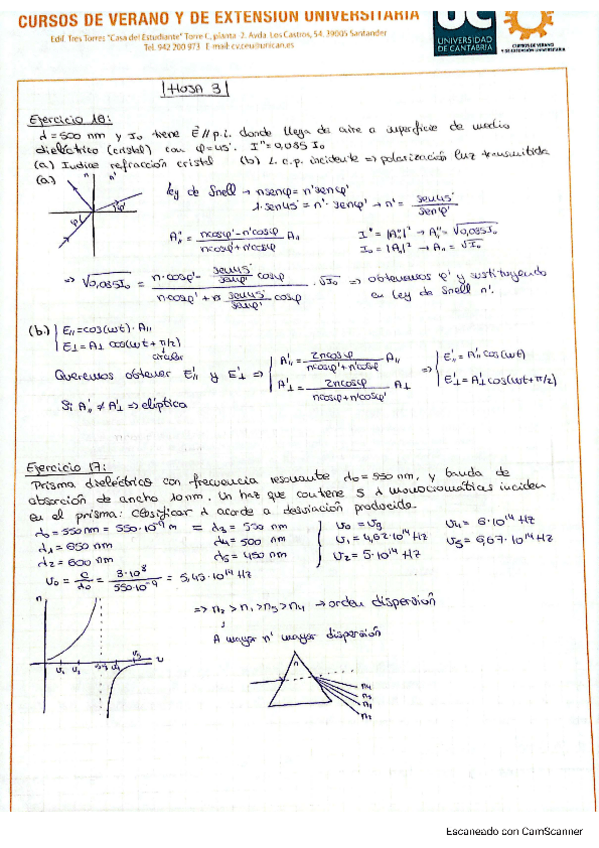 CURSOS DE VERANO Y DE EXTENSIÓN UNIVERSITARIA
Edif. Tres Torres "Casa del Estudiante" Torre C, planta -2. Avda. Los Castros, 54. 39005 Santander
Tel. 942 200 973 E-mail: cv.ceu@unican.es
UC
UNIVERSIDAD DE CANTABRIA
CURSOS DE VERANO
Y DE EXTENSIÓN UNIVERSITARIA
HOJA 3
Ejercicio 16:
λ=500 nm y I₀ tiene E⃗ // p.i. donde llega de aire a superficie de medio
dieléctrico (cristal) con φ=45°. I''=0,085 I₀
(a) Indice refracción cristal (b) L.c.p. incidente ⇒ polarización luz transmitida
(a)
n
φ
φ'
Ley de Snell → nsenφ = n'senφ'
1·sen45° = n'·senφ' → n' = sen45°/senφ'
A''∥ = (ncosφ'-n'cosφ)/(ncosφ'+n'cosφ) A∥
I''=|A''∥|² → A''∥=√0,085I₀
I₀=|A∥|² → A∥=√I₀
⇒ √0,085I₀ = (n·cosφ' - sen45°/senφ' cosφ)/(n·cosφ' + n sen45°/senφ' cosφ) · √I₀ ⇒ obtenemos φ' y sustituyendo
en Ley de Snell n'.
(b) E∥=cos(ωt)·A∥
E⊥=A⊥ cos(ωt+π/2)
circular
Queremos obtener E'∥ y E'⊥ ⇒ A'∥ = 2ncosφ/(ncosφ'+n'cosφ) A∥
A'⊥ = 2ncosφ/(ncosφ+n'cosφ') A⊥
⇒ E'∥=A'∥cos(ωt)
E'⊥=A'⊥cos(ωt+π/2)
Si A'∥ ≠ A'⊥ ⇒ elíptica
Ejercicio 17:
Prisma dieléctrico con frecuencia resonante λ₀=550nm, y banda de
absorción de ancho 10nm. Un haz que contiene 5 λ monocromáticas inciden
en el prisma: clasificar λ acorde a desviación producida.
λ₀=550nm = 550·10⁻⁹ m = λ₃ = 550 nm
λ₁=650 nm λ₄=500 nm
λ₂=600 nm λ₅=450 nm
ν₀ = ν₃
ν₁=4,62·10¹⁴Hz
ν₂=5·10¹⁴Hz
ν₄=6·10¹⁴Hz
ν₅=6,67·10¹⁴Hz
ν₀ = c/λ₀ = 3·10⁸/550·10⁻⁹ = 5,45·10¹⁴Hz
⇒ n₂ > n₁ > n₅ > n₄ → orden dispersión
A mayor n' mayor dispersión
n
ν₁ ν₂
ν₅
ν
n
n₄
n₅
n₁
n₂
Escaneado con CamScanner